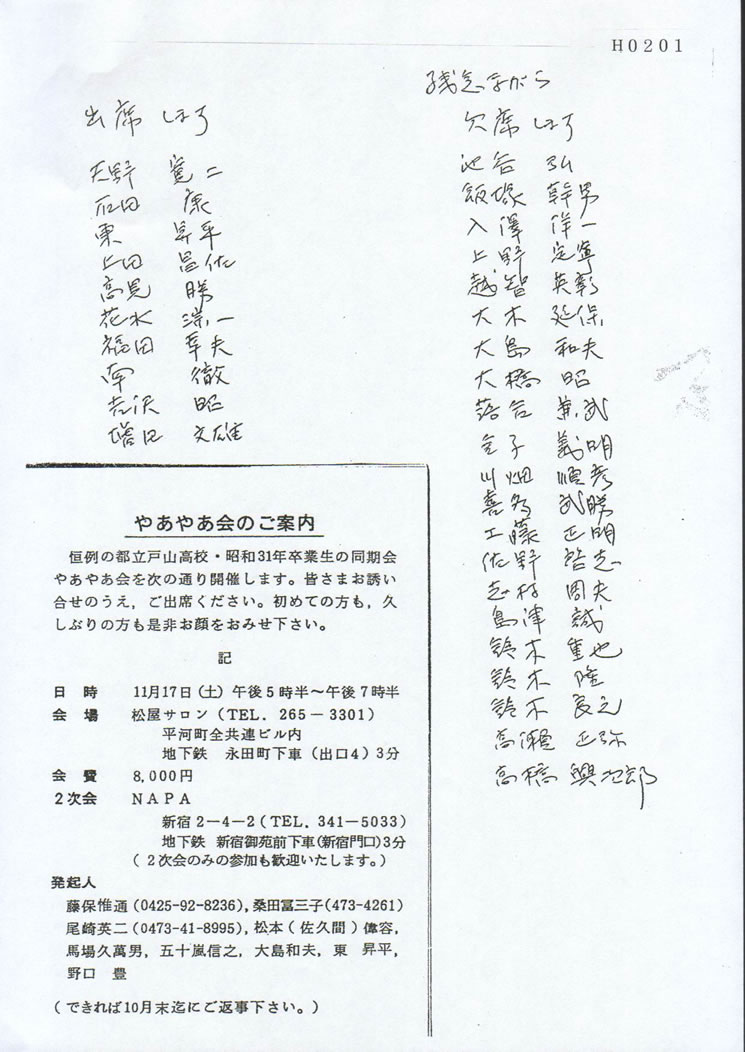 H0201
出席します
天野 寛二
石田 康
東 昇平
上田 昌佐
高見 勝
花水 洸一
福田 幸夫
南 徹
吉沢 昭
増田 文雄
残念ながら
欠席します
池谷 弘
飯塚 幹男
入澤 洋一
上野 定寧
越智 英彰
大木 延保
大島 和夫
大橋 昭
落合 兼武
金子 義明
川畑 順彦
喜多 武勝
工藤 正明
佐野 啓志
志村 周夫
島津 誠
鈴木 重也
鈴木 隆
鈴木 良之
高瀬 正弥
高橋 興次郎
やあやあ会のご案内
恒例の都立戸山高校・昭和31年卒業生の同期会
やあやあ会を次の通り開催します。皆さまお誘い
合せのうえ,ご出席ください。初めての方も,久
しぶりの方も是非お顔をおみせ下さい。
記
日 時 11月17日(土)午後5時半~午後7時半
会 場 松屋サロン(TEL. 265-3301)
平河町全共連ビル内
地下鉄 永田町下車(出口4)3分
会 費 8,000円
2次会 NAPA
新宿2-4-2(TEL. 341-5033)
地下鉄 新宿御苑前下車(新宿門口)3分
(2次会のみの参加も歓迎いたします。)
発起人
藤保惟通(0425-92-8236),桑田冨三子(473-4261)
尾崎英二(0473-41-8995),松本(佐久間)偉容,
馬場久萬男,五十嵐信之,大島和夫,東 昇平,
野口 豊
(できれば10月末迄にご返事下さい。)